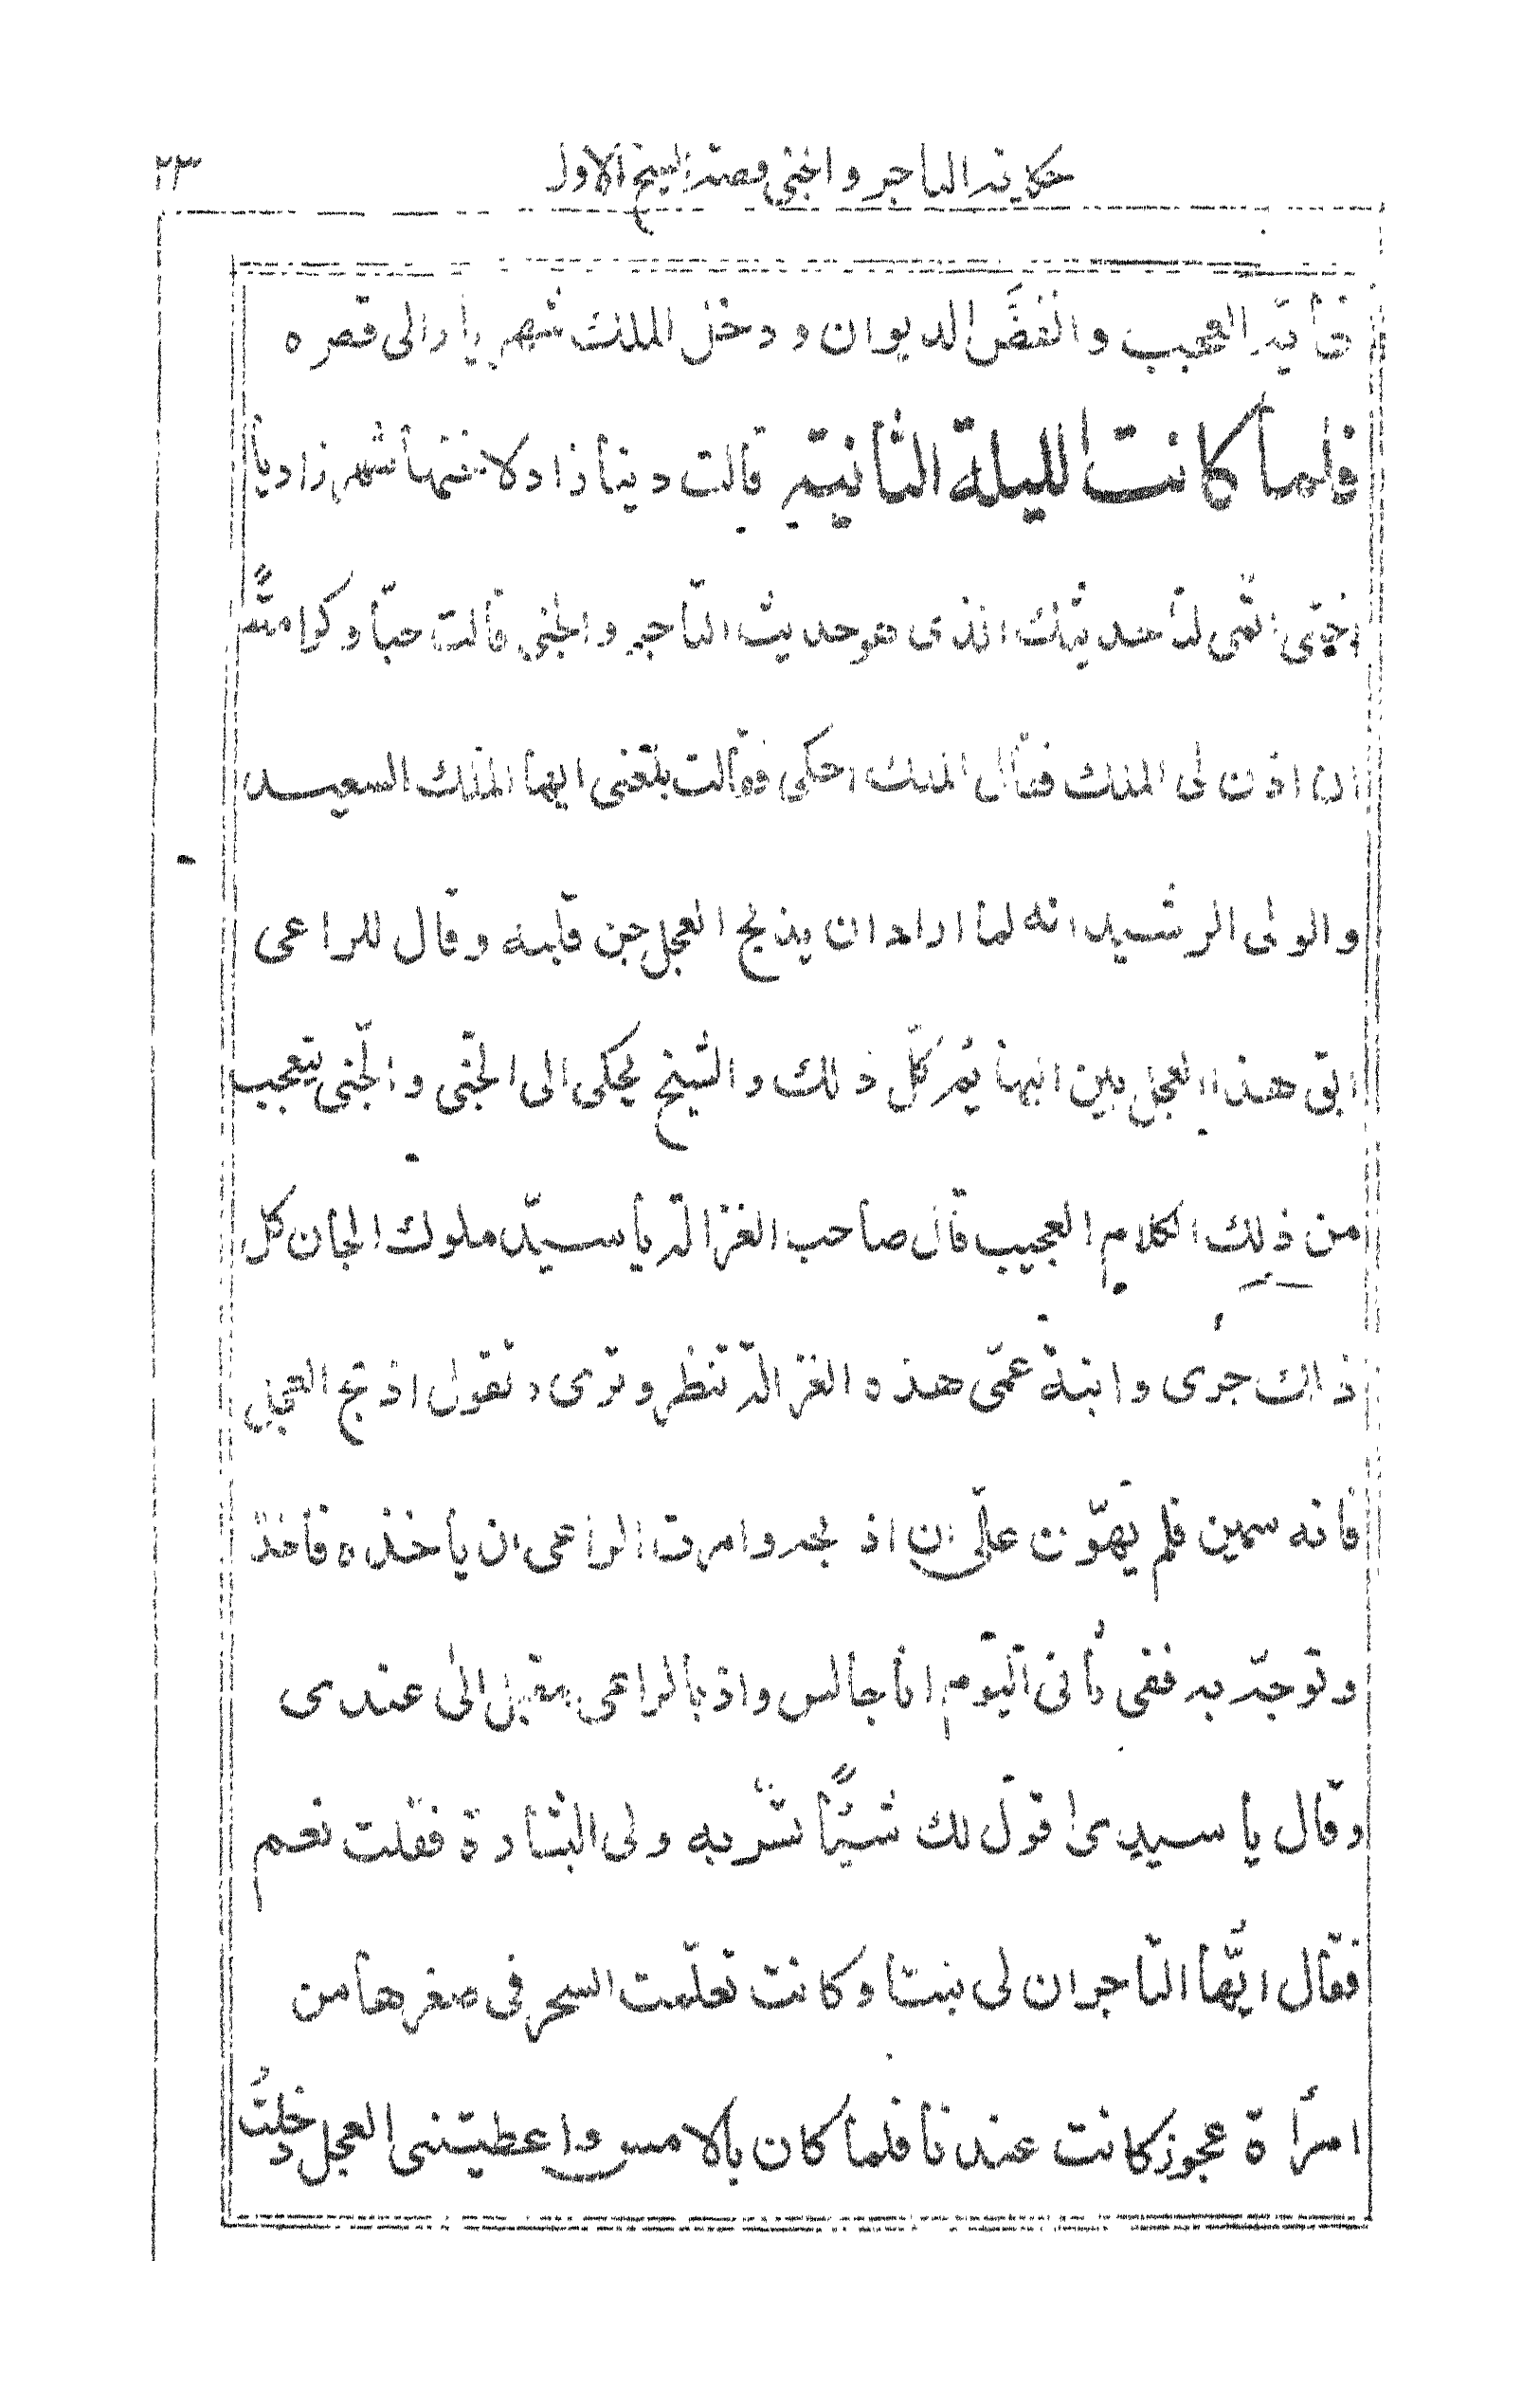 حكاية التاجر والجني وقصة الشيخ الاول ٢٣
غاية العجب وانفضّ الديوان ودخل الملك شهريار الى قصره
فلما كانت الليلة الثانية قالت دينازاد لاختها شهرزاد يا
اختى اتمى لنا حديثك الذى هو حديث التاجر والجنى قالت حبّا وكرامةً
ان اذن لى الملك فقال الملك احكى فقالت بلغنى ايها الملك السعيد
والولى الرشيد انه لما اراد ان يذبح العجل حن قلبه وقال للراعى
ابق هذا العجل بين البهايم كلّ ذلك والشيخ يحكى الى الجنّى والجنّى يتعجب
من ذلك الكلام العجيب قال صاحب الغزالة يا سيّد ملوك الجان كل
ذلك جرى وابنة عمّى هذه الغزالة تنظر وترى وتقول اذبح العجل
فانه سمين فلم يهوّن علّى ان اذبحه وامرت الراعى ان ياخذه فأخذه
وتوجّه به ففى ثانى اليوم انا جالس واذ بالراعى مقبل الى عندى
وقال يا سيدى اقول لك شيئًا تسّر به ولى البشارة فقلت نعم
فقال ايّها التاجر ان لى بنتا وكانت تعلّمت السحر فى صغرها من
امرأة عجوز كانت عندنا فلما كان بالامس واعطيتنى العجل دخلتُ